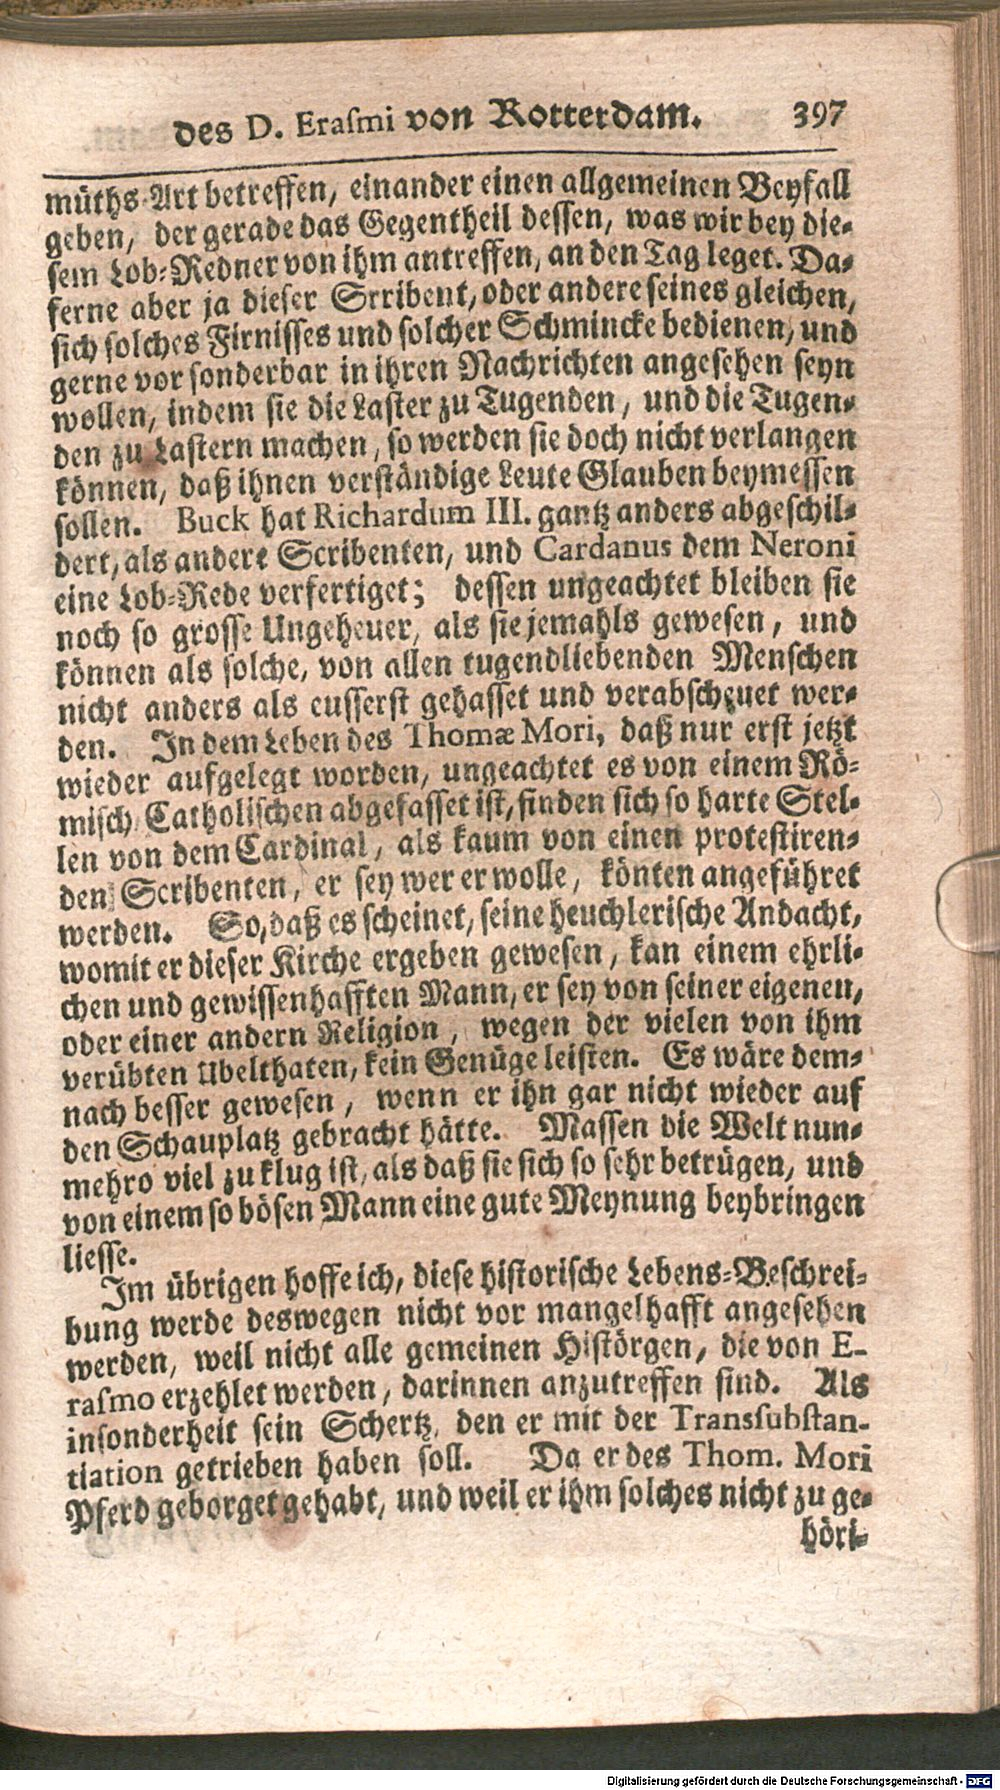 des D. Erasmi von Rotterdam. 397
müths-Art betreffen, einander einen allgemeinen Beyfall
geben, der gerade das Gegentheil dessen, was wir bey die-
sem Lob-Redner von ihm antreffen, an den Tag leget. Da-
ferne aber ja dieser Srribent, oder andere seines gleichen,
sich solches Firnisses und solcher Schmincke bedienen, und
gerne vor sonderbar in ihren Nachrichten angesehen seyn
wollen, indem sie die Laster zu Tugenden, und die Tugen-
den zu Lastern machen, so werden sie doch nicht verlangen
können, daß ihnen verständige Leute Glauben beymessen
sollen. Buck hat Richardum III. gantz anders abgeschil-
dert, als andere Scribenten, und Cardanus dem Neroni
eine Lob-Rede verfertiget; dessen ungeachtet bleiben sie
noch so grosse Ungeheuer, als sie jemahls gewesen, und
können als solche, von allen tugendliebenden Menschen
nicht anders als eusserst gehasset und verabscheuet wer-
den. In dem Leben des Thomæ Mori, daß nur erst jetzt
wieder aufgelegt worden, ungeachtet es von einem Rö-
misch Catholischen abgefasset ist, finden sich so harte Stel-
len von dem Cardinal, als kaum von einen protestiren-
den Scribenten, er sey wer er wolle, könten angeführet
werden. So, daß es scheinet, seine heuchlerische Andacht,
womit er dieser Kirche ergeben gewesen, kan einem ehrli-
chen und gewissenhafften Mann, er sey von seiner eigenen,
oder einer andern Religion, wegen der vielen von ihm
verübten Ubelthaten, kein Genüge leisten. Es wäre dem-
nach besser gewesen, wenn er ihn gar nicht wieder auf
den Schauplatz gebracht hätte. Massen die Welt nun-
mehro viel zu klug ist, als daß sie sich so sehr betrügen, und
von einem so bösen Mann eine gute Meynung beybringen
liesse.
Im übrigen hoffe ich, diese historische Lebens-Beschrei-
bung werde deswegen nicht vor mangelhafft angesehen
werden, weil nicht alle gemeinen Histörgen, die von E-
rasmo erzehlet werden, darinnen anzutreffen sind. Als
insonderheit sein Schertz, den er mit der Transsubstan-
tiation getrieben haben soll. Da er des Thom. Mori
Pferd geborget gehabt, und weil er ihm solches nicht zu ge-
höri-
Digitalisierung gefördert durch die Deutsche Forschungsgemeinschaft - DFG